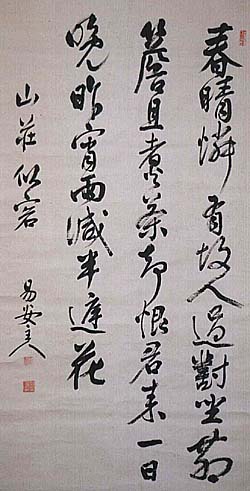 春晴憐有故人過對坐茆
簷且煮茶却恨君来一日
晩昨宵雨減半庭花
山莊似客 易安主人